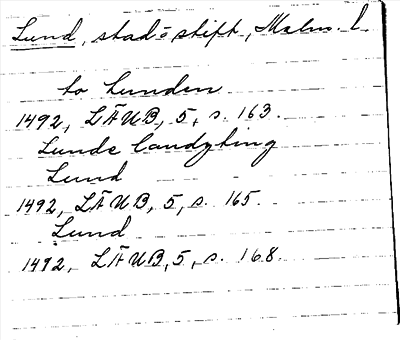 Lund, stad o stift, Malm. l.
to Lunden
1492, LÄUB, 5, s. 163.
Lunde landzting
Lund
1492, LÄUB, 5, s. 165.
Lund
1492, LÄUB, 5, s. 168.